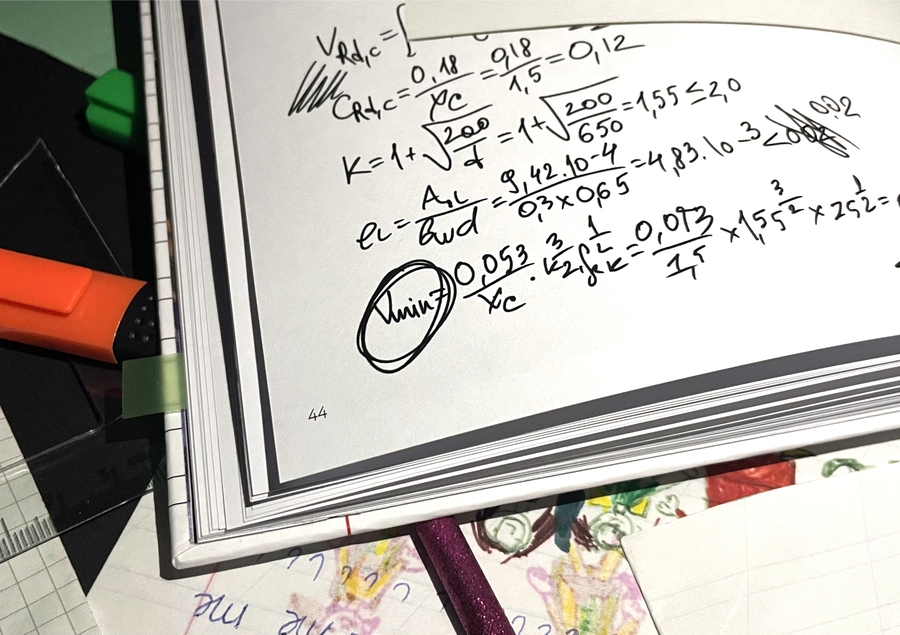 V_Rd,c = [
C_Rd,c = 0,18/γc = 0,18/1,5 = 0,12
K = 1 + √(200/d) = 1 + √(200/650) = 1,55 ≤ 2,0
ρL = AsL/bwd = 9,42.10^-4/0,3 x 0,65 = 4,83.10^-3 < 0,02
Vmin = 0,053/γc . K^3/2 . fck^1/2 = 0,053/1,5 x 1,55^3/2 x 25^1/2 =
44